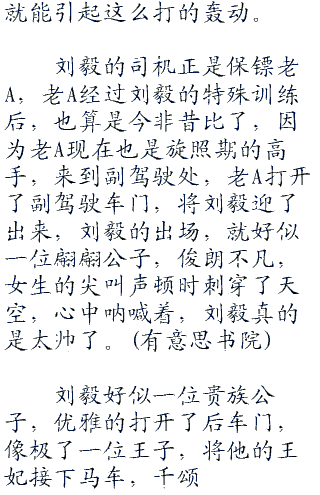 就能引起这么打的轰动。
刘毅的司机正是保镖老
A，老A经过刘毅的特殊训练
后，也算是今非昔比了，因
为老A现在也是旋照期的高
手，来到副驾驶处，老A打开
了副驾驶车门，将刘毅迎了
出来，刘毅的出场，就好似
一位翩翩公子，俊朗不凡，
女生的尖叫声顿时刺穿了天
空，心中呐喊着，刘毅真的
是太帅了。(有意思书院)
刘毅好似一位贵族公
子，优雅的打开了后车门，
像极了一位王子，将他的王
妃接下马车，千颂